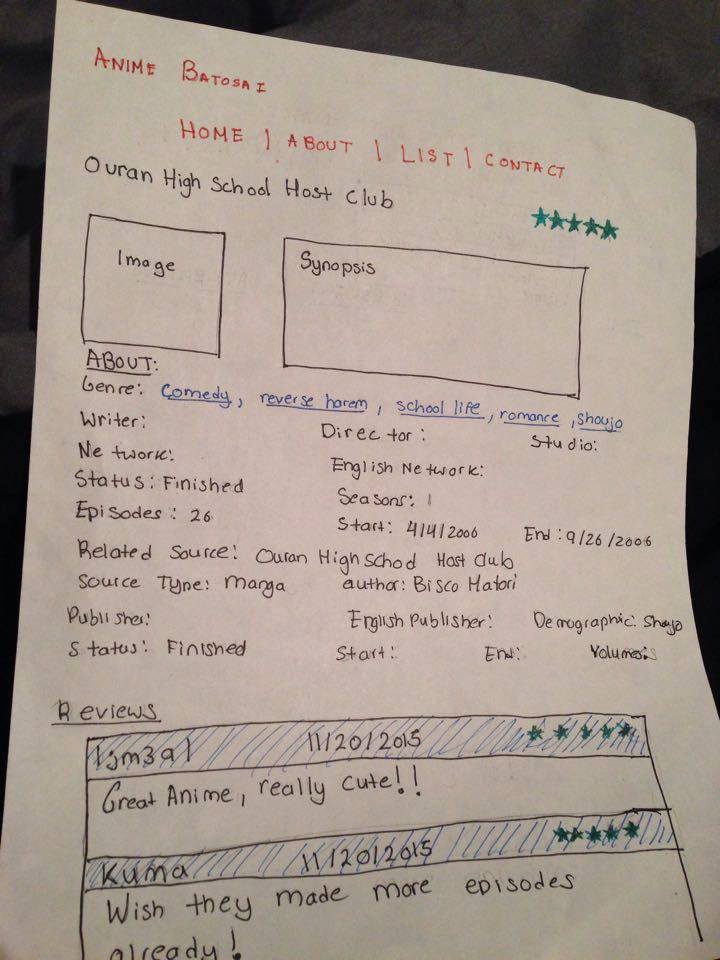 ANIME BATOSAI
HOME | ABOUT | LIST | CONTACT
Ouran High School Host Club
Image
Synopsis
ABOUT:
Genre: Comedy, reverse harem, school life, romance, shoujo
Writer: Director: Studio:
Network: English Network:
Status: Finished Seasons: 1
Episodes: 26 Start: 4/4/2006 End: 9/26/2006
Related Source: Ouran High School Host Club
Source Type: Manga author: Bisco Hatori
Publisher: English Publisher: Demographic: Shoujo
Status: Finished Start: End: Volumes:
Reviews
11/20/2015
Great Anime, really cute!!
Kuma 11/20/2015
Wish they made more episodes
already!